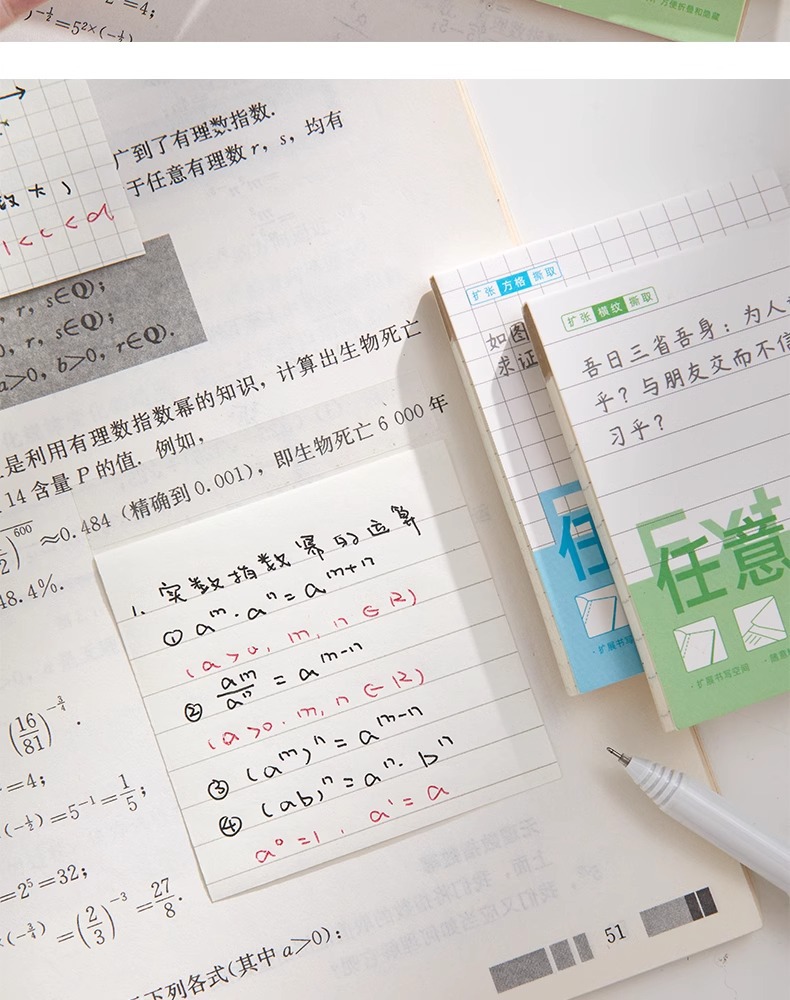 =4;
)^{-\frac{1}{2}}=5^{2×(-\frac{1}{2})
方便折叠和隐藏
数大)
1<c<d
广到了有理数指数.
于任意有理数 r，s，均有
, r, s∈Q);
0, r, s∈Q);
a>0, b>0, r∈Q).
是利用有理数指数幂的知识，计算出生物死亡
14含量 P 的值. 例如，
)^{600} ≈0.484 (精确到0.001)，即生物死亡 6 000 年
48.4%.
(\frac{16}{81})^{-\frac{3}{4}}.
=4;
(-\frac{1}{2})=5^{-1}=\frac{1}{5};
=2^5=32;
(-\frac{3}{4})=(\frac{2}{3})^{-3}=\frac{27}{8}.
下列各式(其中 a>0):
51
1. 实数指数幂的运算
① a^m·a^n=a^{m+n}
(a>0, m, n∈R)
② \frac{a^m}{a^n}=a^{m-n}
(a>0. m, n∈R)
③ (a^m)^n=a^{m-n}
④ (ab)^n=a^n·b^n
a^0=1, a^1=a
扩张 方格 撕取
如图
求证
任
·扩展书写
扩张 横纹 撕取
吾日三省吾身：为人
乎？与朋友交而不信
习乎？
Ext
任意
·扩展书写空间
·随意